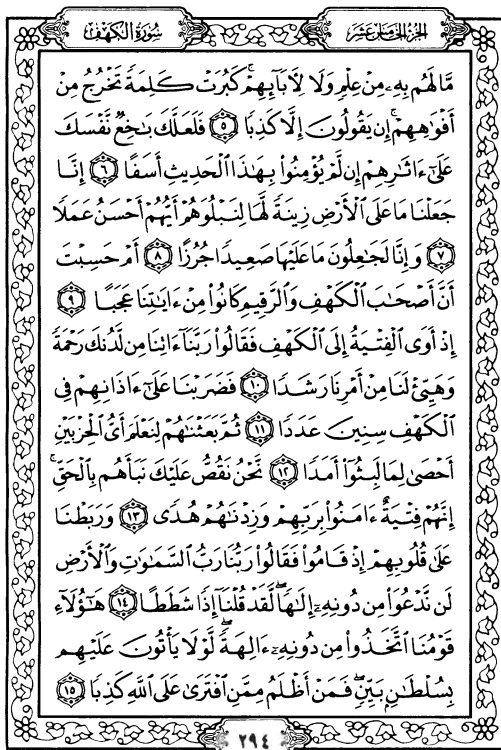 الجزء الخامس عشر
سورة الكهف
مَّا لَهُم بِهِۦ مِنْ عِلْمٍ وَلَا لِأَبَآئِهِمْ ۚ كَبُرَتْ كَلِمَةً تَخْرُجُ مِنْ
أَفْوَٰهِهِمْ ۚ إِن يَقُولُونَ إِلَّا كَذِبًا ٥ فَلَعَلَّكَ بَٰخِعٌ نَّفْسَكَ
عَلَىٰٓ ءَاثَٰرِهِمْ إِن لَّمْ يُؤْمِنُوا۟ بِهَٰذَا الْحَدِيثِ أَسَفًا ٦ إِنَّا
جَعَلْنَا مَا عَلَى الْأَرْضِ زِينَةً لَّهَا لِنَبْلُوَهُمْ أَيُّهُمْ أَحْسَنُ عَمَلًا
٧ وَإِنَّا لَجَٰعِلُونَ مَا عَلَيْهَا صَعِيدًا جُرُزًا ٨ أَمْ حَسِبْتَ
أَنَّ أَصْحَٰبَ الْكَهْفِ وَالرَّقِيمِ كَانُوا۟ مِنْ ءَايَٰتِنَا عَجَبًا ٩
إِذْ أَوَى الْفِتْيَةُ إِلَى الْكَهْفِ فَقَالُوا۟ رَبَّنَآ ءَاتِنَا مِن لَّدُنكَ رَحْمَةً
وَهَيِّئْ لَنَا مِنْ أَمْرِنَا رَشَدًا ١٠ فَضَرَبْنَا عَلَىٰٓ ءَاذَانِهِمْ فِى
الْكَهْفِ سِنِينَ عَدَدًا ١١ ثُمَّ بَعَثْنَٰهُمْ لِنَعْلَمَ أَىُّ الْحِزْبَيْنِ
أَحْصَىٰ لِمَا لَبِثُوٓا۟ أَمَدًا ١٢ نَّحْنُ نَقُصُّ عَلَيْكَ نَبَأَهُم بِالْحَقِّ ۚ
إِنَّهُمْ فِتْيَةٌ ءَامَنُوا۟ بِرَبِّهِمْ وَزِدْنَٰهُمْ هُدًى ١٣ وَرَبَطْنَا
عَلَىٰ قُلُوبِهِمْ إِذْ قَامُوا۟ فَقَالُوا۟ رَبُّنَا رَبُّ السَّمَٰوَٰتِ وَالْأَرْضِ
لَن نَّدْعُوَا۟ مِن دُونِهِۦٓ إِلَٰهًا ۖ لَّقَدْ قُلْنَآ إِذًا شَطَطًا ١٤ هَٰٓؤُلَآءِ
قَوْمُنَا اتَّخَذُوا۟ مِن دُونِهِۦٓ ءَالِهَةً ۖ لَّوْلَا يَأْتُونَ عَلَيْهِم
بِسُلْطَٰنٍۭ بَيِّنٍ ۖ فَمَنْ أَظْلَمُ مِمَّنِ افْتَرَىٰ عَلَى اللَّهِ كَذِبًا ١٥
٢٩٤